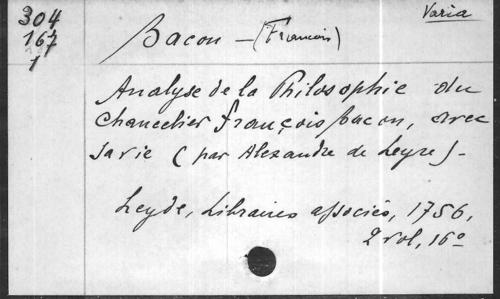 Varia
304
167
1
Bacon - (Francois)
Analyse de la Philosophie du
Chancelier François bacon, avec
sa vie (par Alexandre de Leyre) -
Leyde, Libraires associés, 1756,
2 vol, 16º